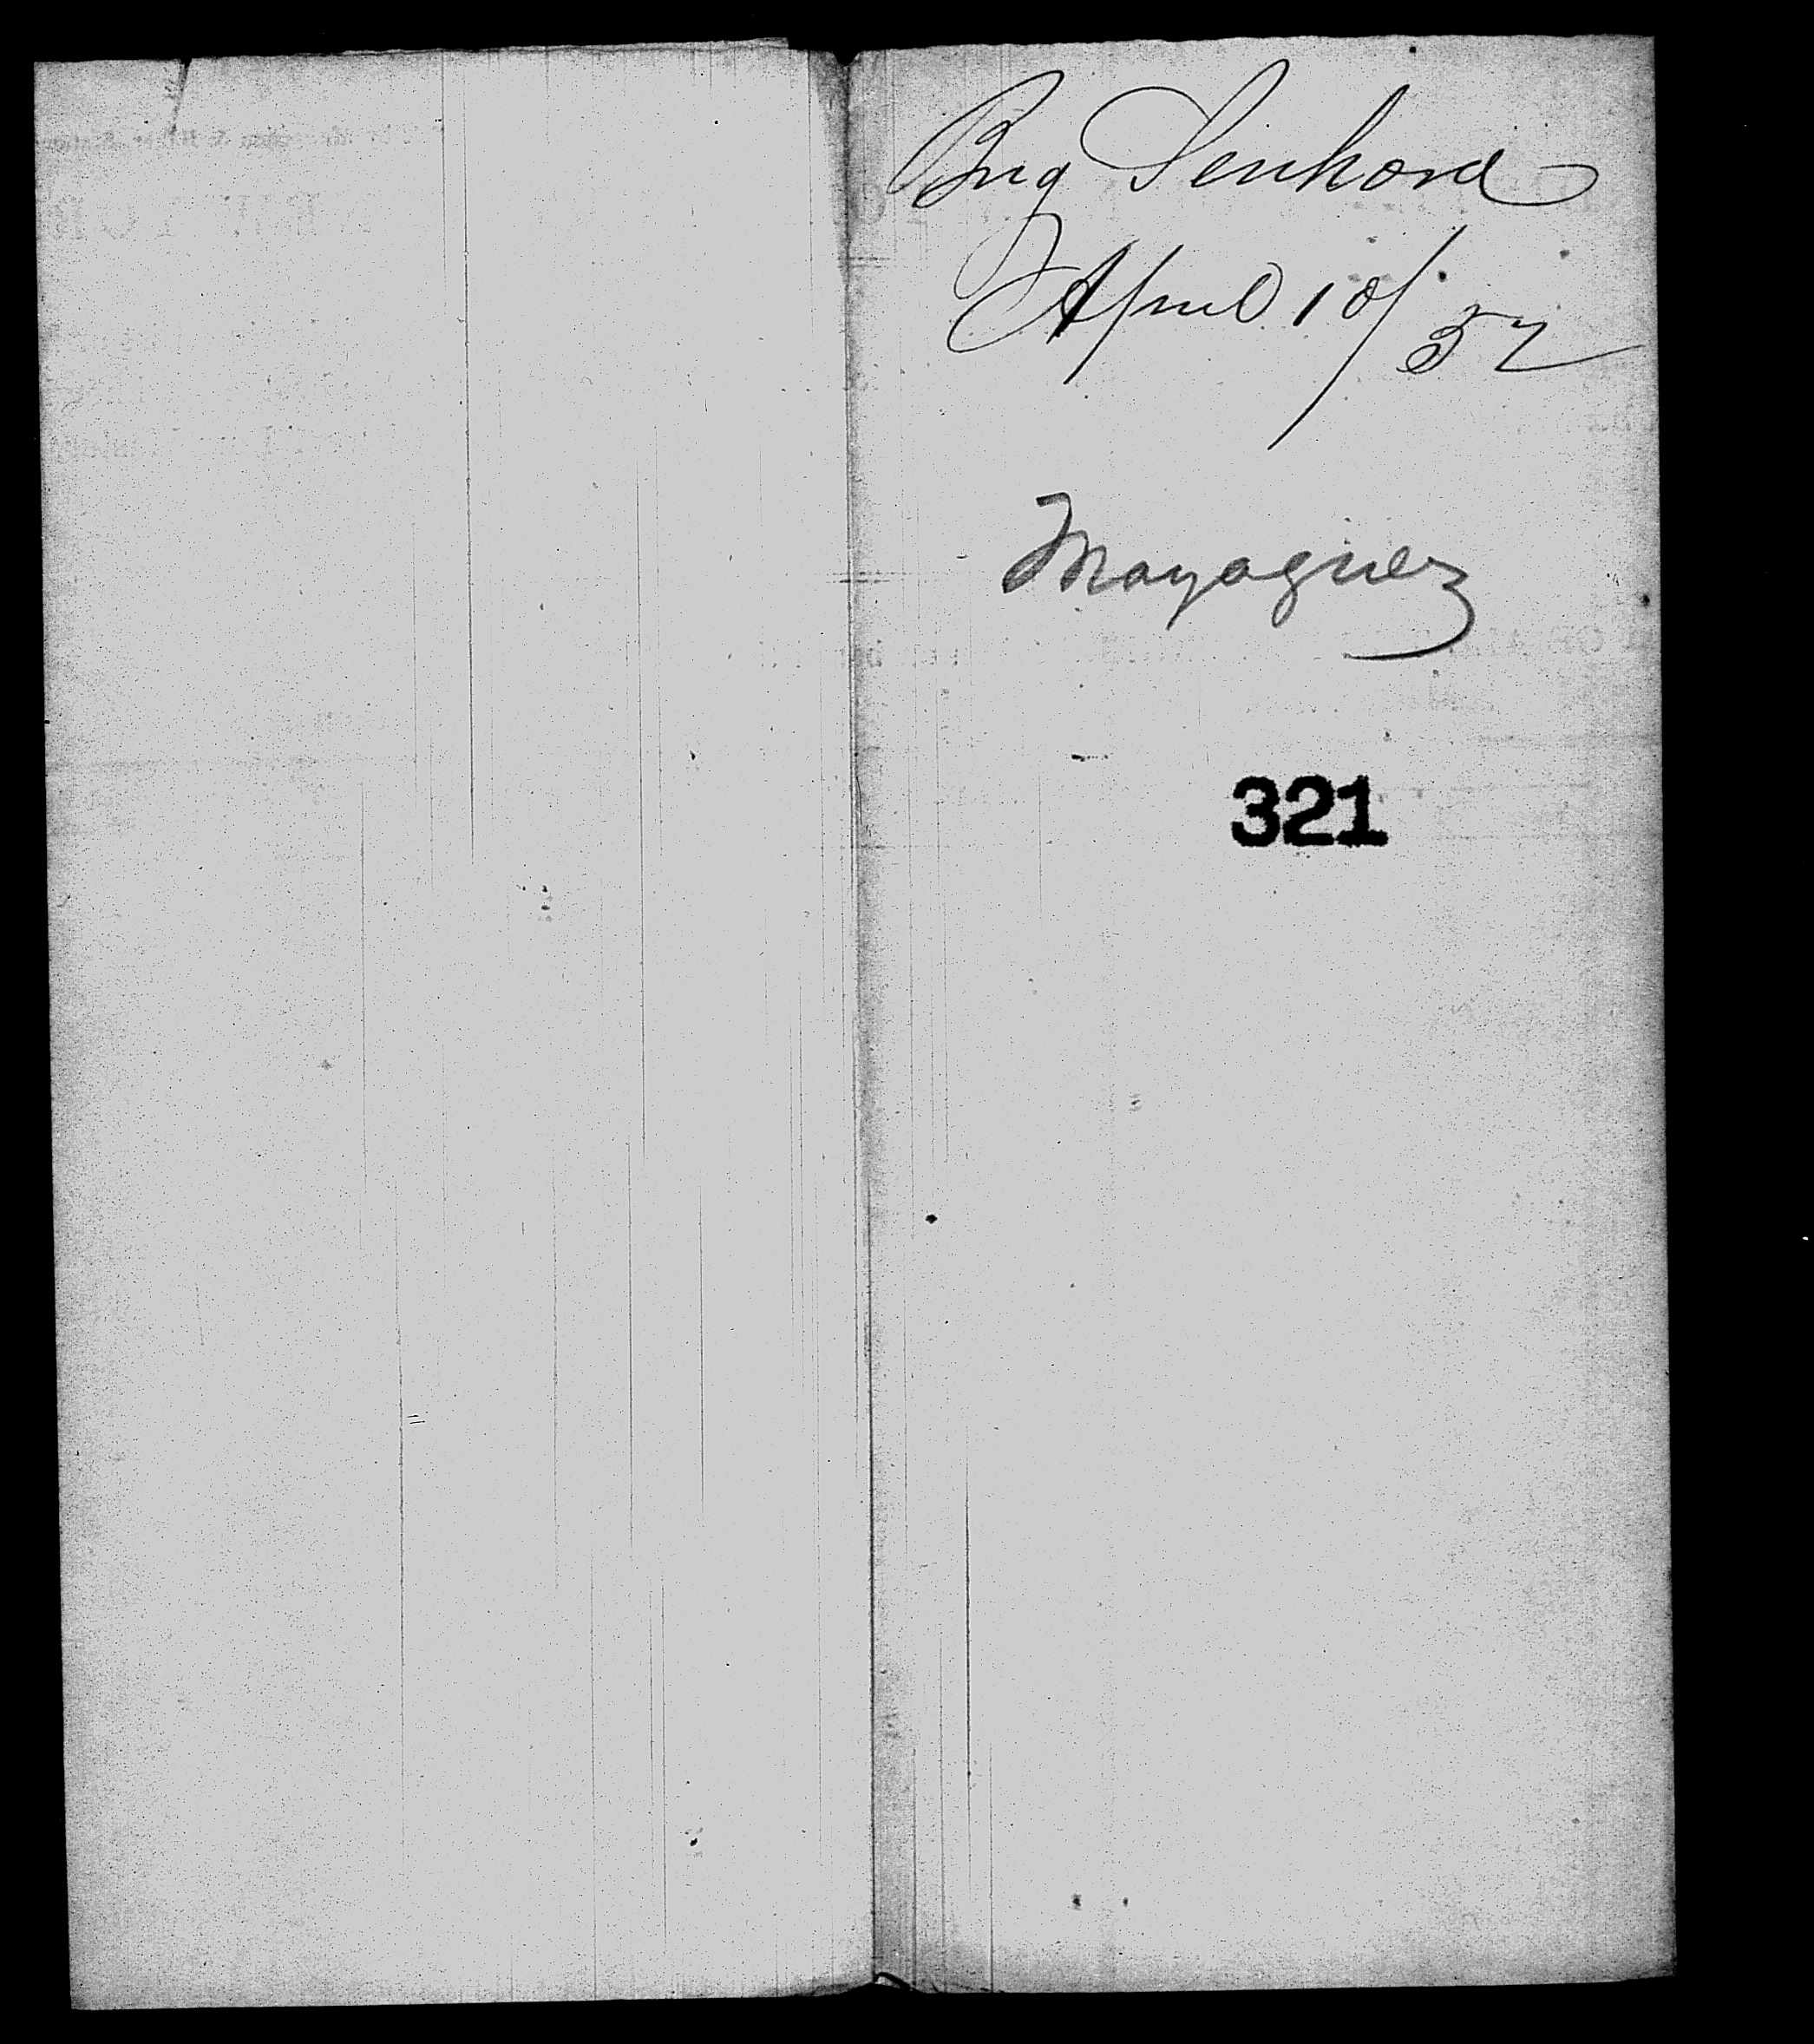 Brig Senhora
April 10/52
Mayaguez
321